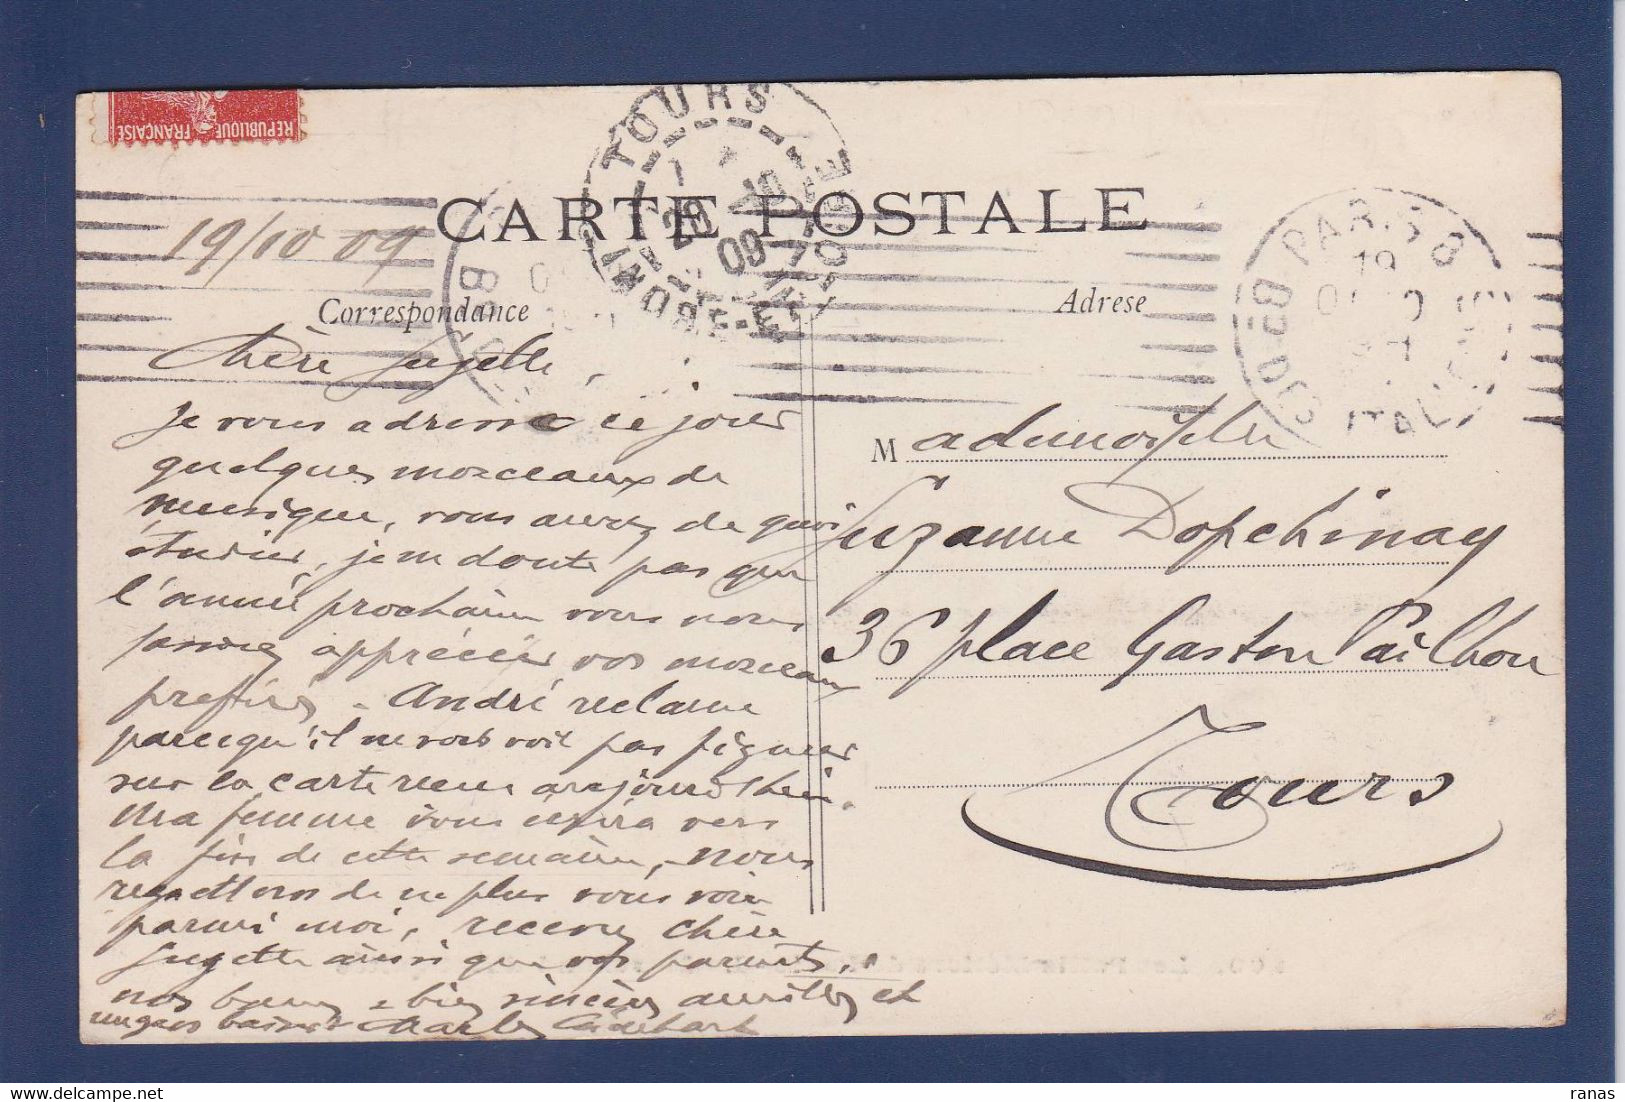 REPUBLIQUE FRANÇAISE
TOURS
INDRE-ET-LOIRE
20
10
09
PARIS 8
19
ITALIE
CARTE POSTALE
19/10 09
Correspondance
Adrese
Chère Suzette,
Je vous adresse ce jour
quelques morceaux de
musique, vous aurez de quoi
étudier, je ne doute pas que
l'année prochaine vous nous
fassiez apprécier vos morceaux
préférés. André réclame
parcequ'il ne vous voit pas figurer
sur la carte reçue aujourd'hui.
Ma femme vous écrira vers
la fin de cette semaine, nous
regrettons de ne plus vous voir
parmi moi, recevez chère
Suzette ainsi que vos parents,
nos bien sincères amitiés et
un gros baiser Charles
Mademoiselle
Suzanne Dopchinay
36 place Gaston Pailhou
Tours
ranas